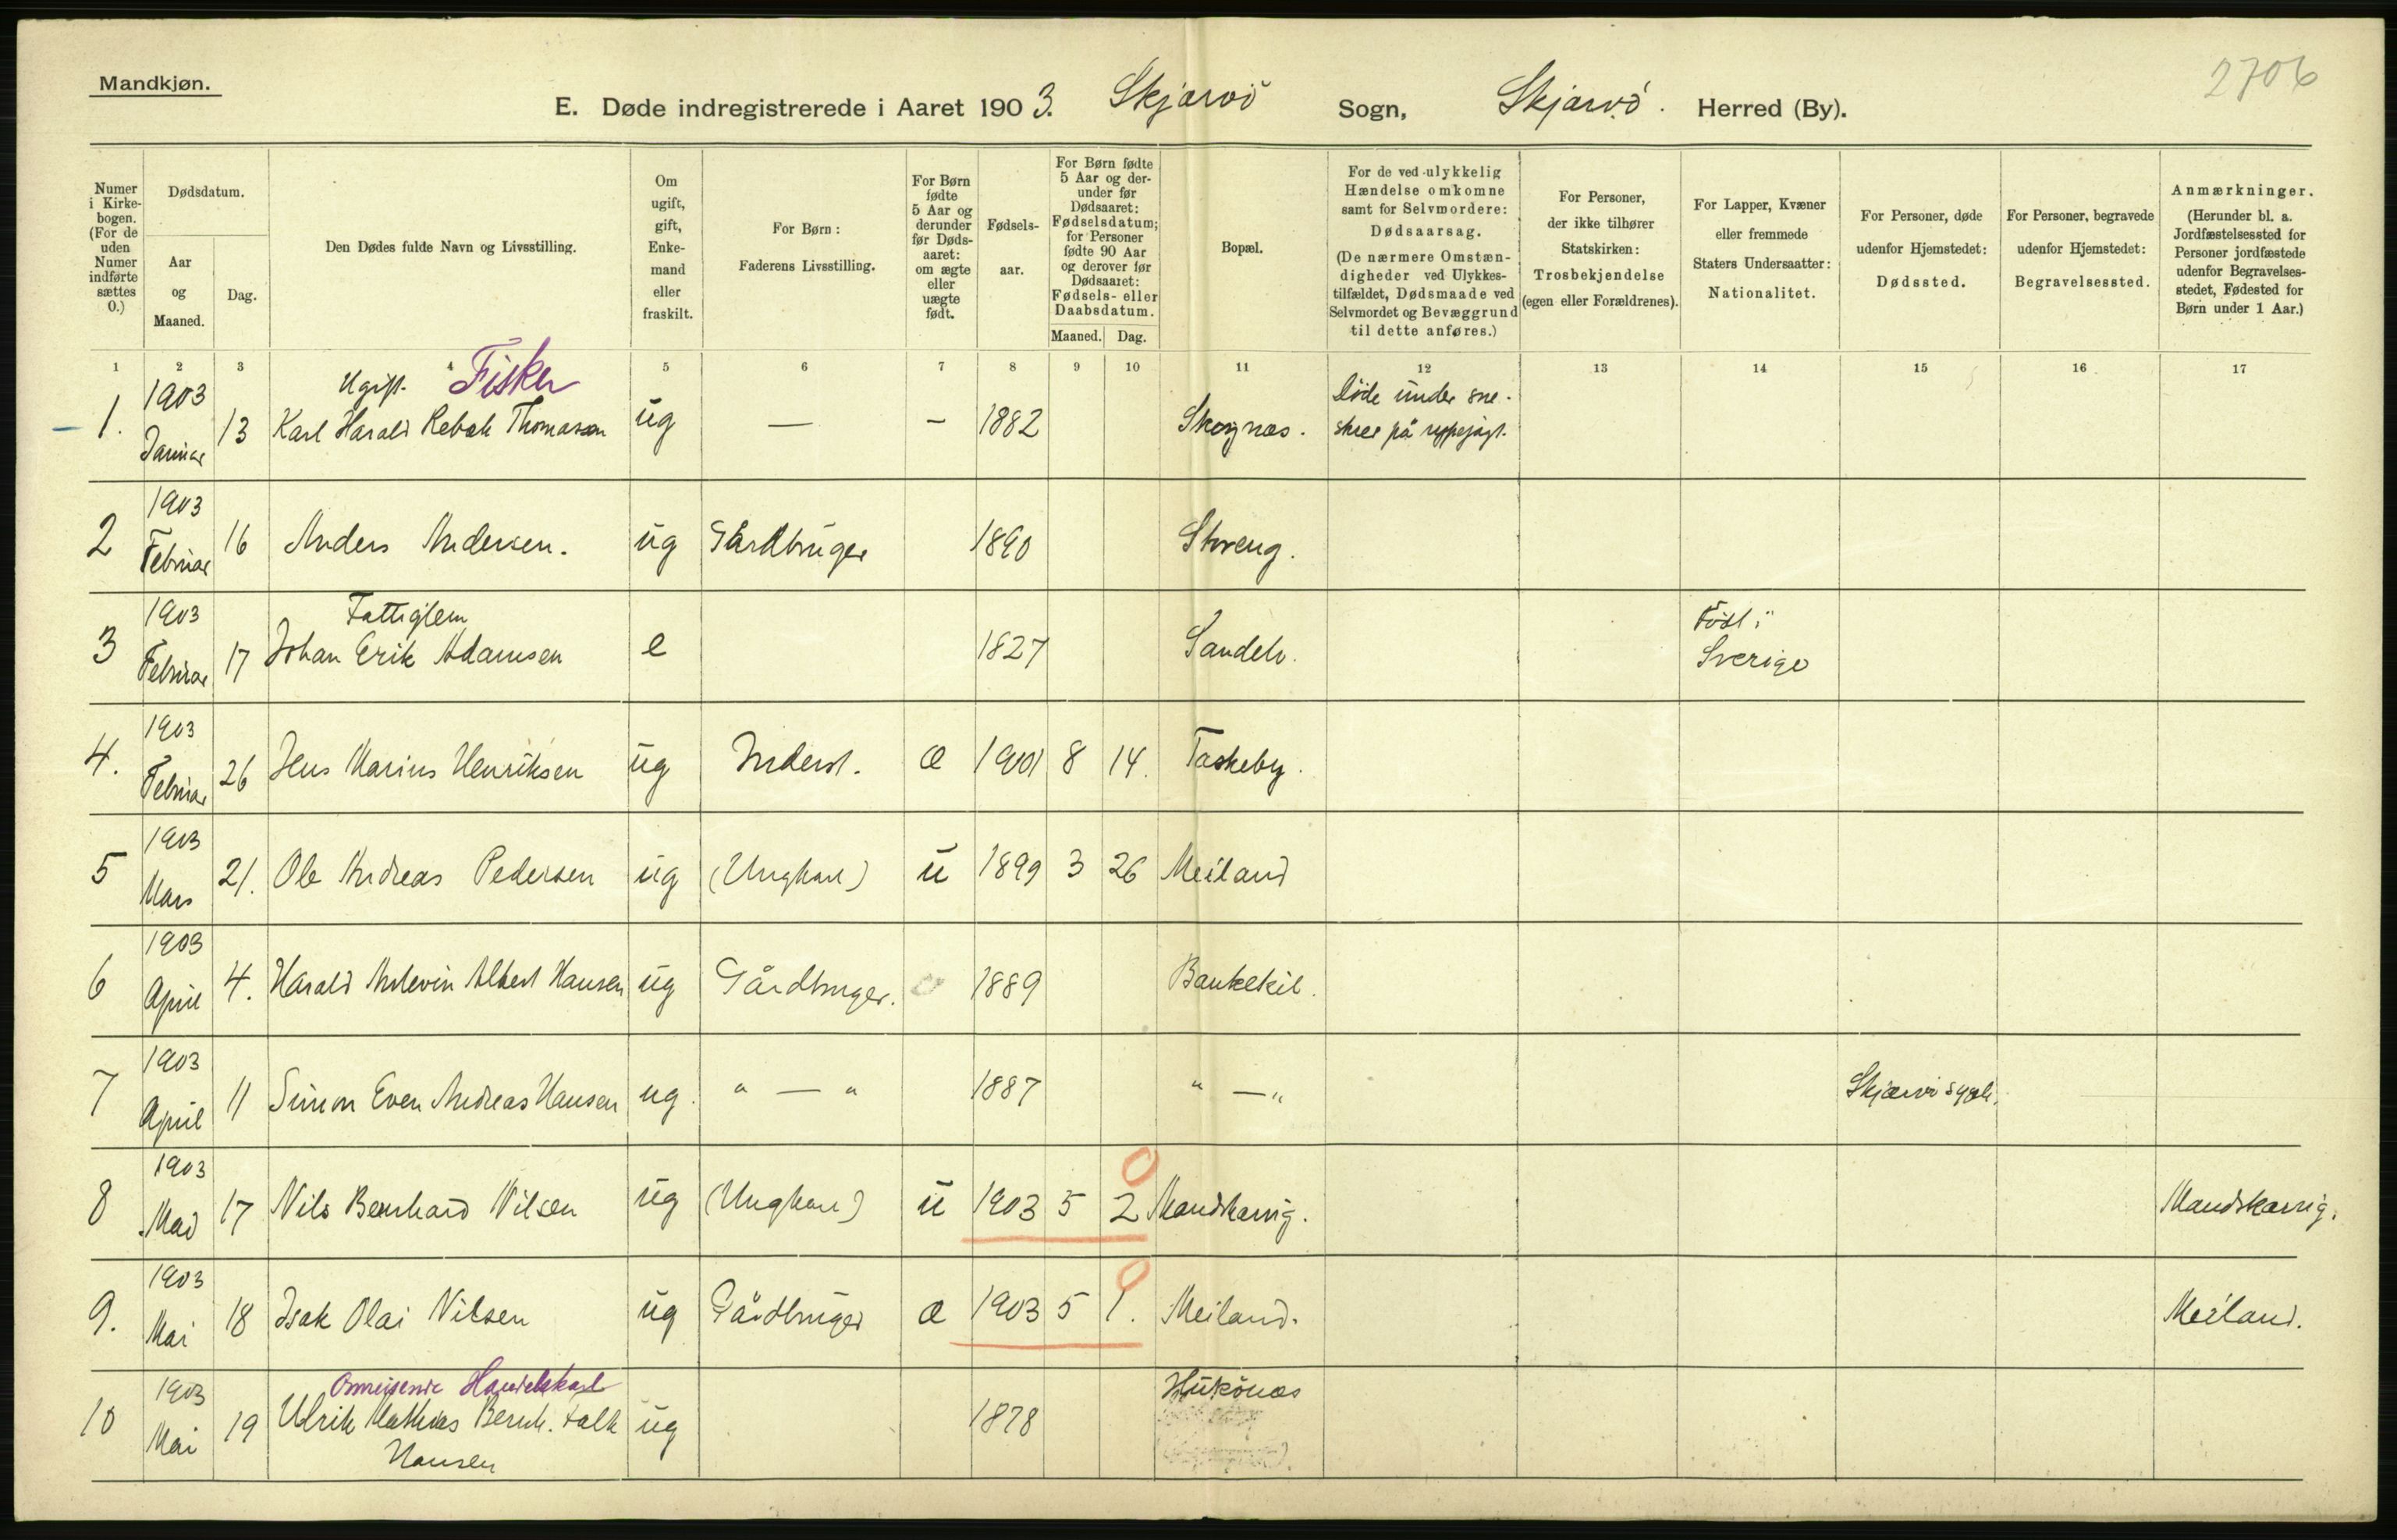 Mandkjøn.
2706
E. Døde indregistrerede i Aaret 1903. Skjærvö Sogn, Skjærvö. Herred (By).
Numer i Kirke-bogen. (For de uden Numer indførte sættes 0.)
Dødsdatum.
Aar og Maaned.
Dag.
Den Dødes fulde Navn og Livsstilling.
Om ugift, gift, Enke-mand eller fraskilt.
For Børn: Faderens Livsstilling.
For Børn fødte 5 Aar og derunder før Døds-aaret: om ægte eller uægte født.
Fødsels-aar.
For Børn fødte 5 Aar og der-under før Dødsaaret: Fødselsdatum; for Personer fødte 90 Aar og derover før Dødsaaret: Fødsels- eller Daabsdatum.
Maaned. Dag.
Bopæl.
For de ved ulykkelig Hændelse omkomne samt for Selvmordere: Dødsaarsag. (De nærmere Omstæn-digheder ved Ulykkes-tilfældet, Dødsmaade ved Selvmordet og Bevæggrund til dette anføres.)
For Personer, der ikke tilhører Statskirken: Trosbekjendelse (egen eller Forældrenes).
For Lapper, Kvæner eller fremmede Staters Undersaatter: Nationalitet.
For Personer, døde udenfor Hjemstedet: Dødssted.
For Personer, begravede udenfor Hjemstedet: Begravelsessted.
Anmærkninger. (Herunder bl. a. Jordfæstelsessted for Personer jordfæstede udenfor Begravelses-stedet, Fødested for Børn under 1 Aar.)
1 2 3 4 5 6 7 8 9 10 11 12 13 14 15 16 17
1. 1903 Januar 13 Ugift. Fisker Karl Harald Rebek Thomassen ug — – 1882 Skognæs. Döde under sne-skred på rypejagt.
2 1903 Februar 16 Anders Andersen. ug Gårdbruger 1890 Storeng.
3 1903 Februar 17 Fattiglem Johan Erik Adamsen e 1827 Sandeb. Född i Sverige
4. 1903 Februar 26 Jens Marius Henriksen ug Inderst. æ 1901 8 14. Taskeby.
5 1903 Mars 21. Ole Andreas Pedersen ug (Ungkarl) u 1899 3 26 Meiland
6 1903 April 4. Harald Albert Hansen ug Gårdbruger. 1889 Bankekil.
7 1903 April 11 Simon Even Andreas Hansen ug. " — " 1887 " — " Skjærvö sygeh.
8 1903 Mai 17 Nils Bernhard Nilsen ug (Ungkarl) u 1903 5 2 0 Mandskarvig. Mandskarvig.
9. 1903 Mai 18 Isak Olai Nilsen ug Gårdbruger æ 1903 5 1. 0 Meiland. Meiland.
10 1903 Mai 19 Omreisende Handelskarl Ulrik Mathias Bernh. Falk Hansen ug 1878 Hukönæs